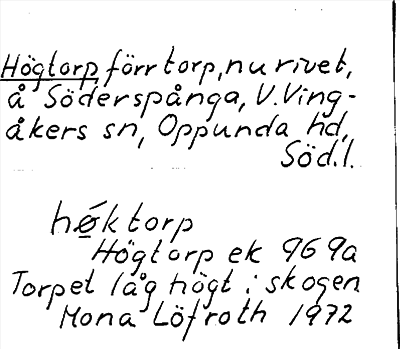 Högtorp, förr torp, nu rivet,
å Söderspånga, V. Ving-
åkers sn, Oppunda hd,
Söd.l.
hǿktorp
Högtorp ek 969a
Torpet låg högt i skogen
Mona Löfroth 1972